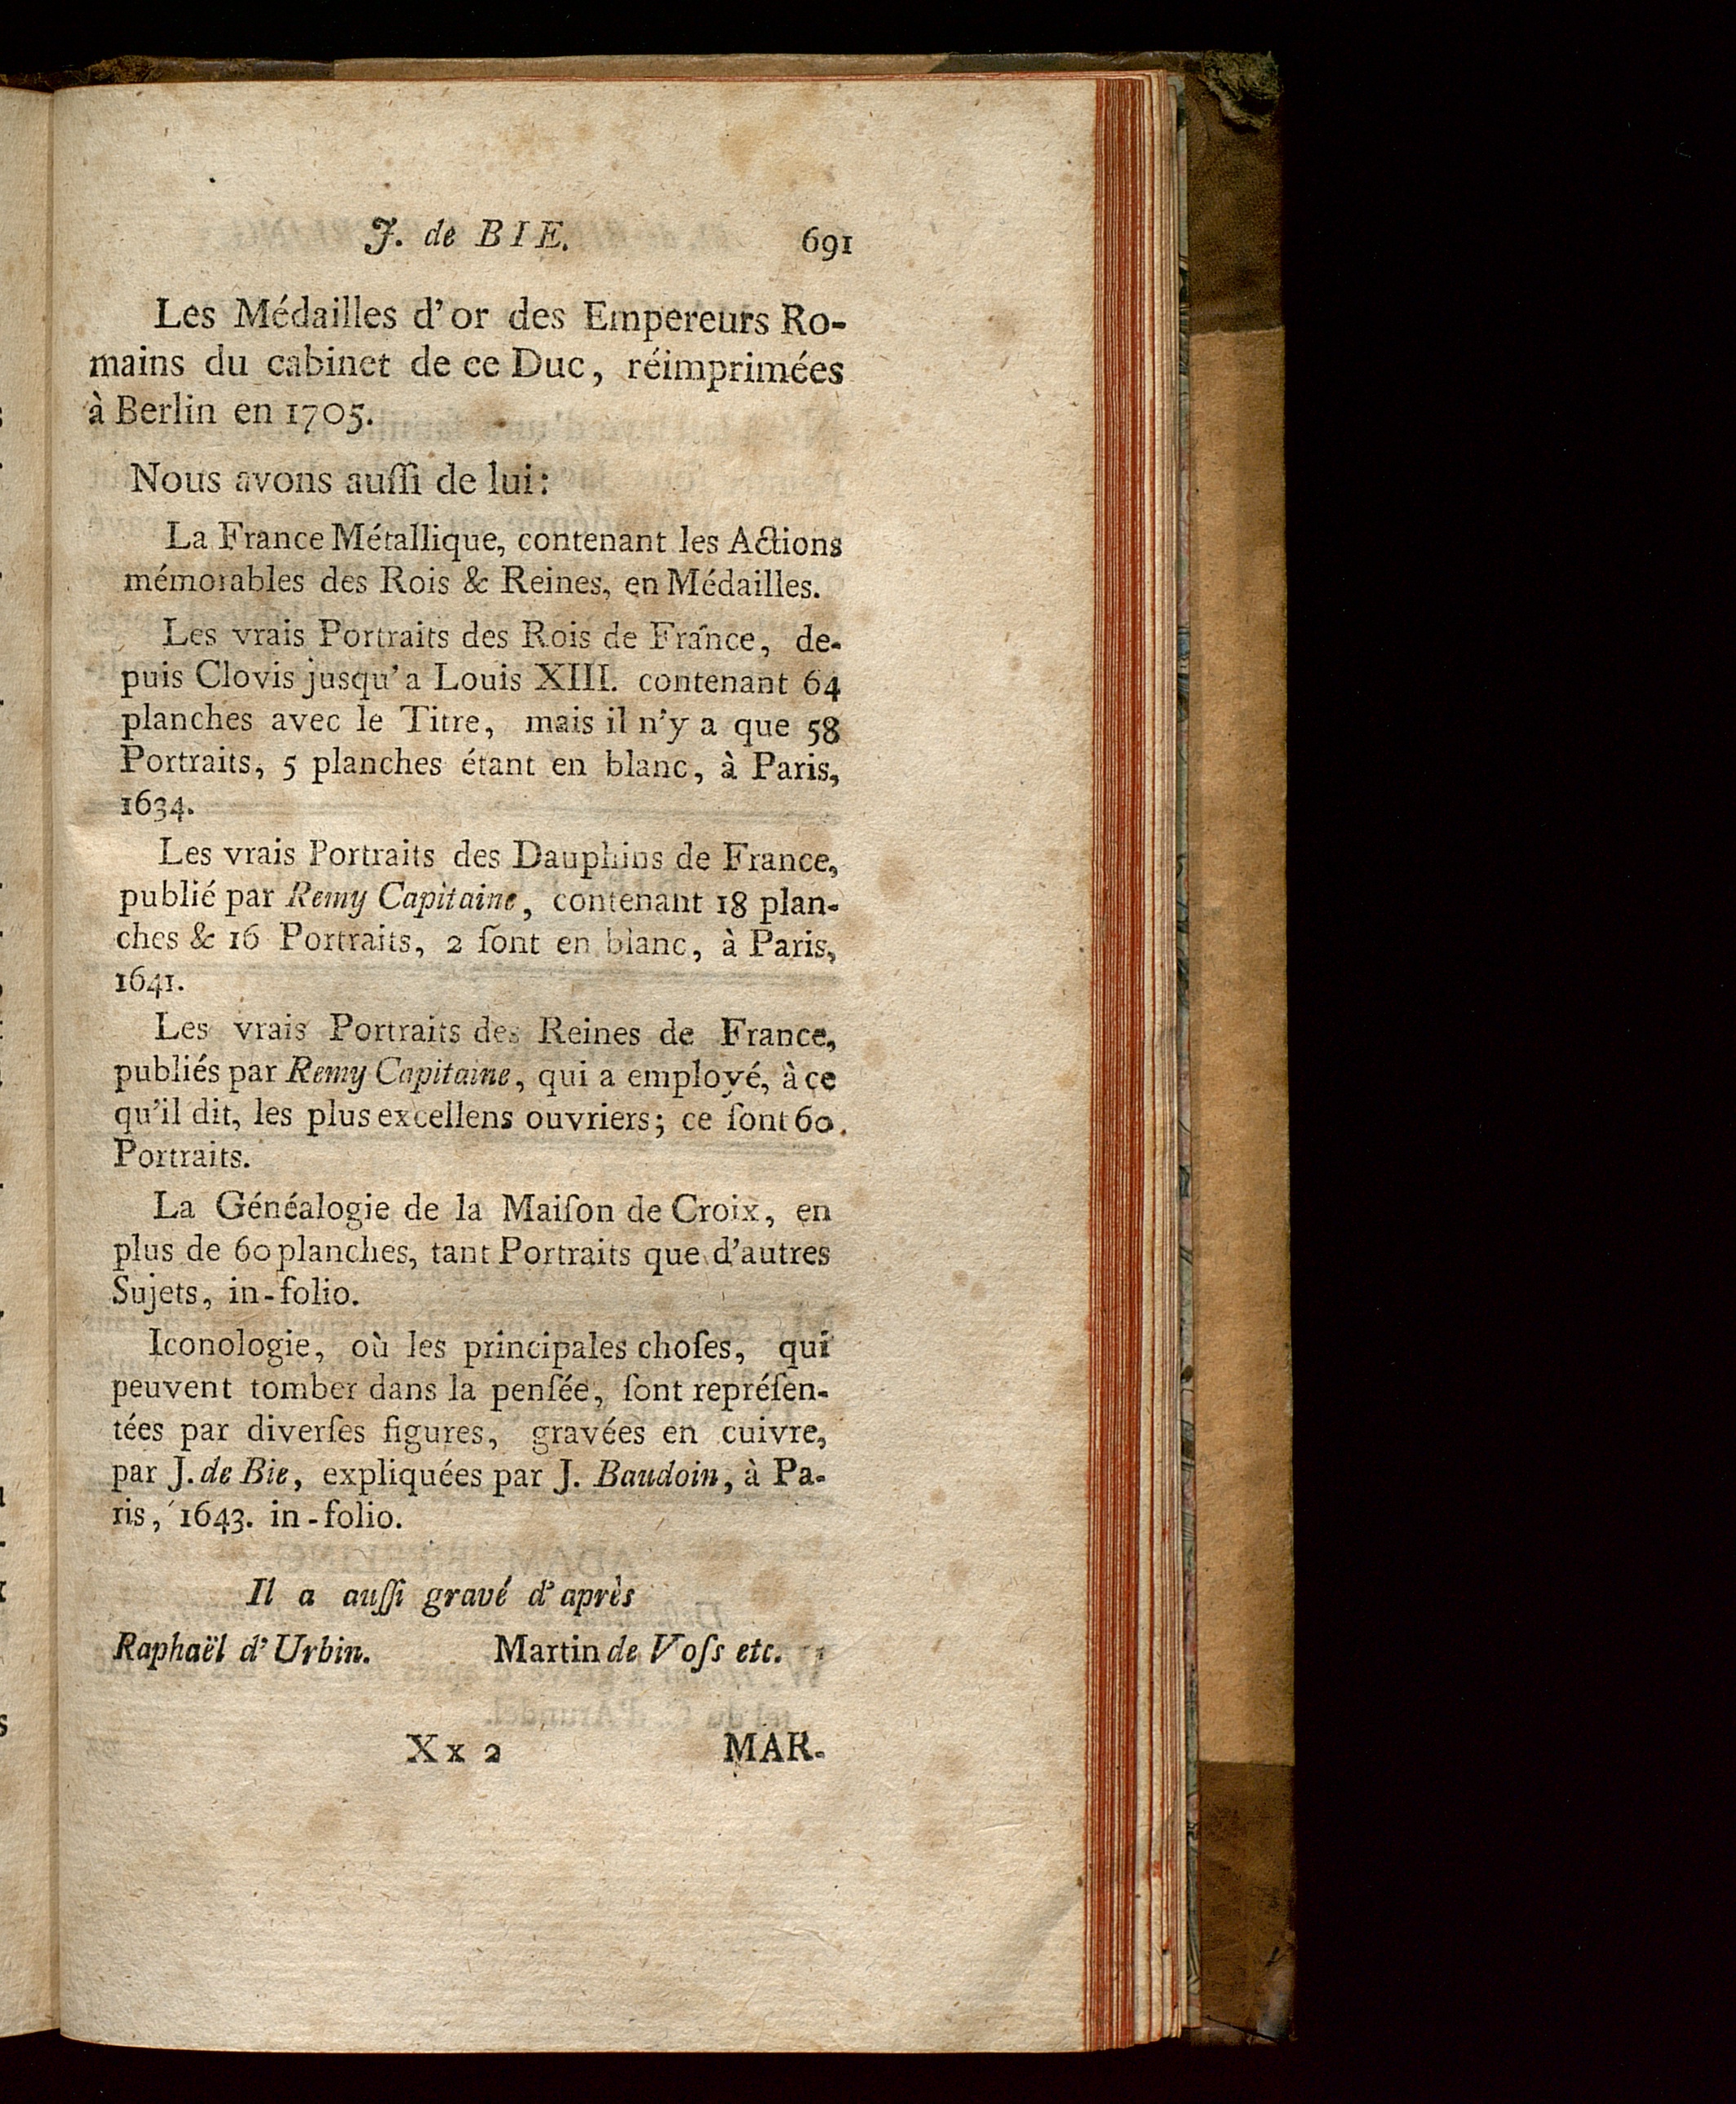 J. de BIE. 691
Les Médailles d'or des Empereurs Ro-
mains du cabinet de ce Duc, réimprimées
à Berlin en 1705.
Nous avons auſſi de lui:
La France Métallique, contenant les Actions
mémorables des Rois & Reines, en Médailles.
Les vrais Portraits des Rois de France, de-
puis Clovis jusqu'a Louis XIII. contenant 64
planches avec le Titre, mais il n'y a que 58
Portraits, 5 planches étant en blanc, à Paris,
1634.
Les vrais Portraits des Dauphins de France,
publié par Remy Capitaine, contenant 18 plan-
ches & 16 Portraits, 2 ſont en blanc, à Paris,
1641.
Les vrais Portraits des Reines de France,
publiés par Remy Capitaine, qui a employé, à ce
qu'il dit, les plus excellens ouvriers; ce ſont 60.
Portraits.
La Généalogie de la Maiſon de Croix, en
plus de 60 planches, tant Portraits que d'autres
Sujets, in-folio.
Iconologie, où les principales choſes, qui
peuvent tomber dans la penſée, ſont repréſen-
tées par diverſes figures, gravées en cuivre,
par J. de Bie, expliquées par J. Baudoin, à Pa-
ris, 1643. in-folio.
Il a auſſi gravé d'après
Raphaël d'Urbin. Martin de Voſs etc.
Xx 2 MAR-